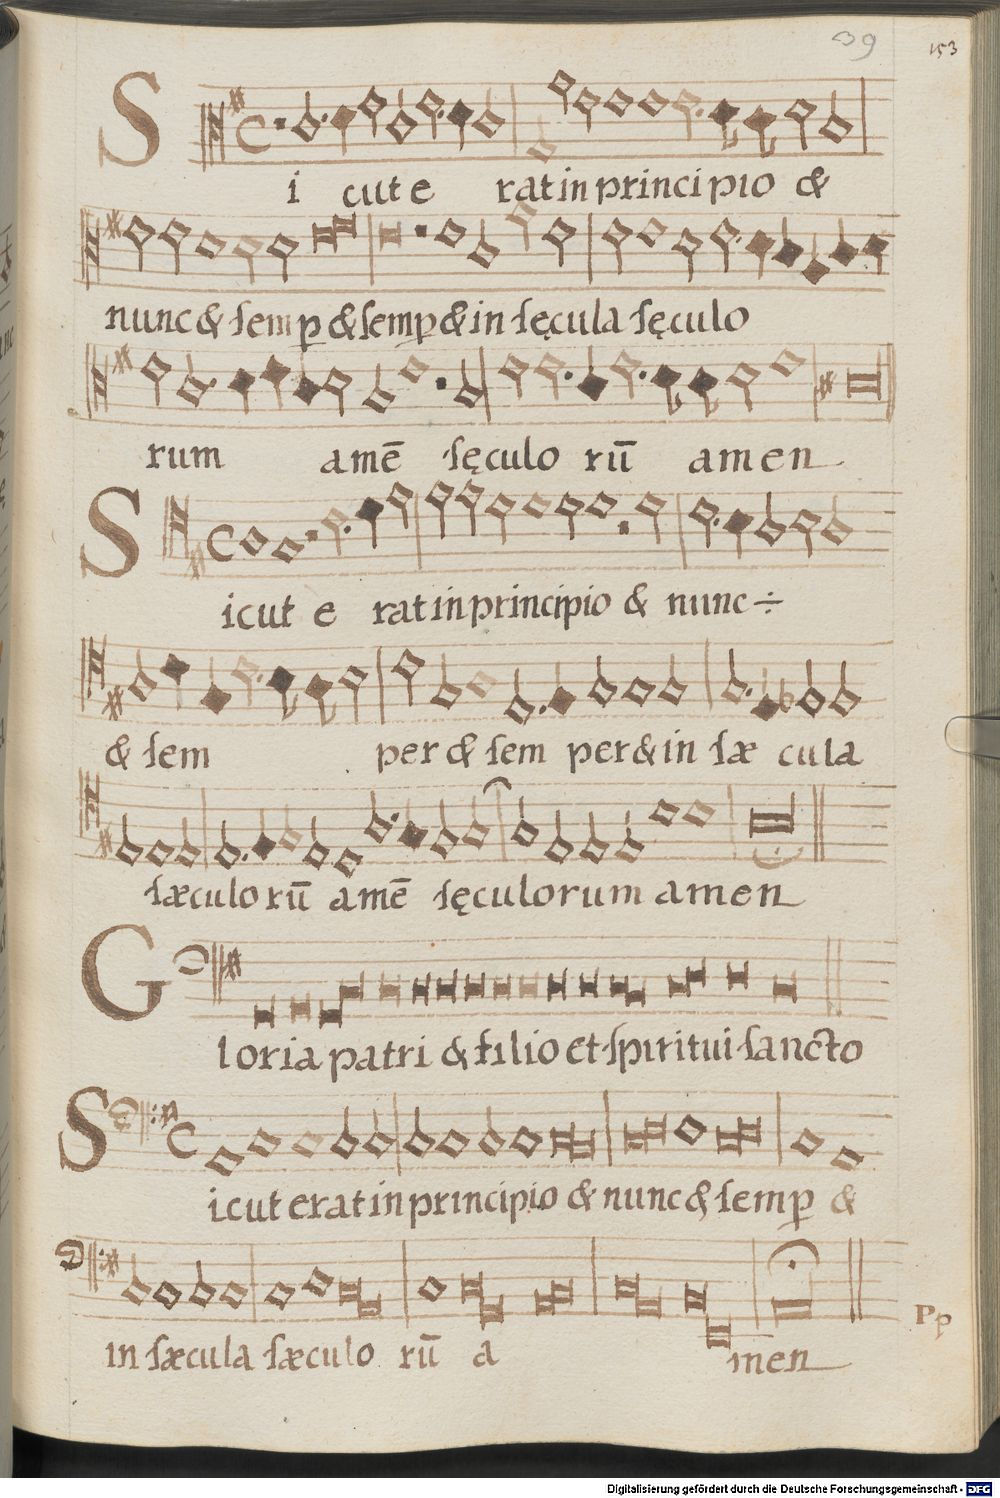 39
153
S
i cut e rat in principio &
nunc & ſem p̱ & ſemp̱ & in ſęcula ſęculo
rum amē ſęculo rū amen
S
icut e rat in principio & nunc ÷
& ſem per & ſem per & in ſæ cula
ſæculo rū amē ſęculorum amen
G
loria patri & filio et ſpiritui ſancto
S
icut erat in principio & nunc & ſemp̱ &
in ſæcula ſæculo rū a men
Pp
Digitalisierung gefördert durch die Deutsche Forschungsgemeinschaft - DFG